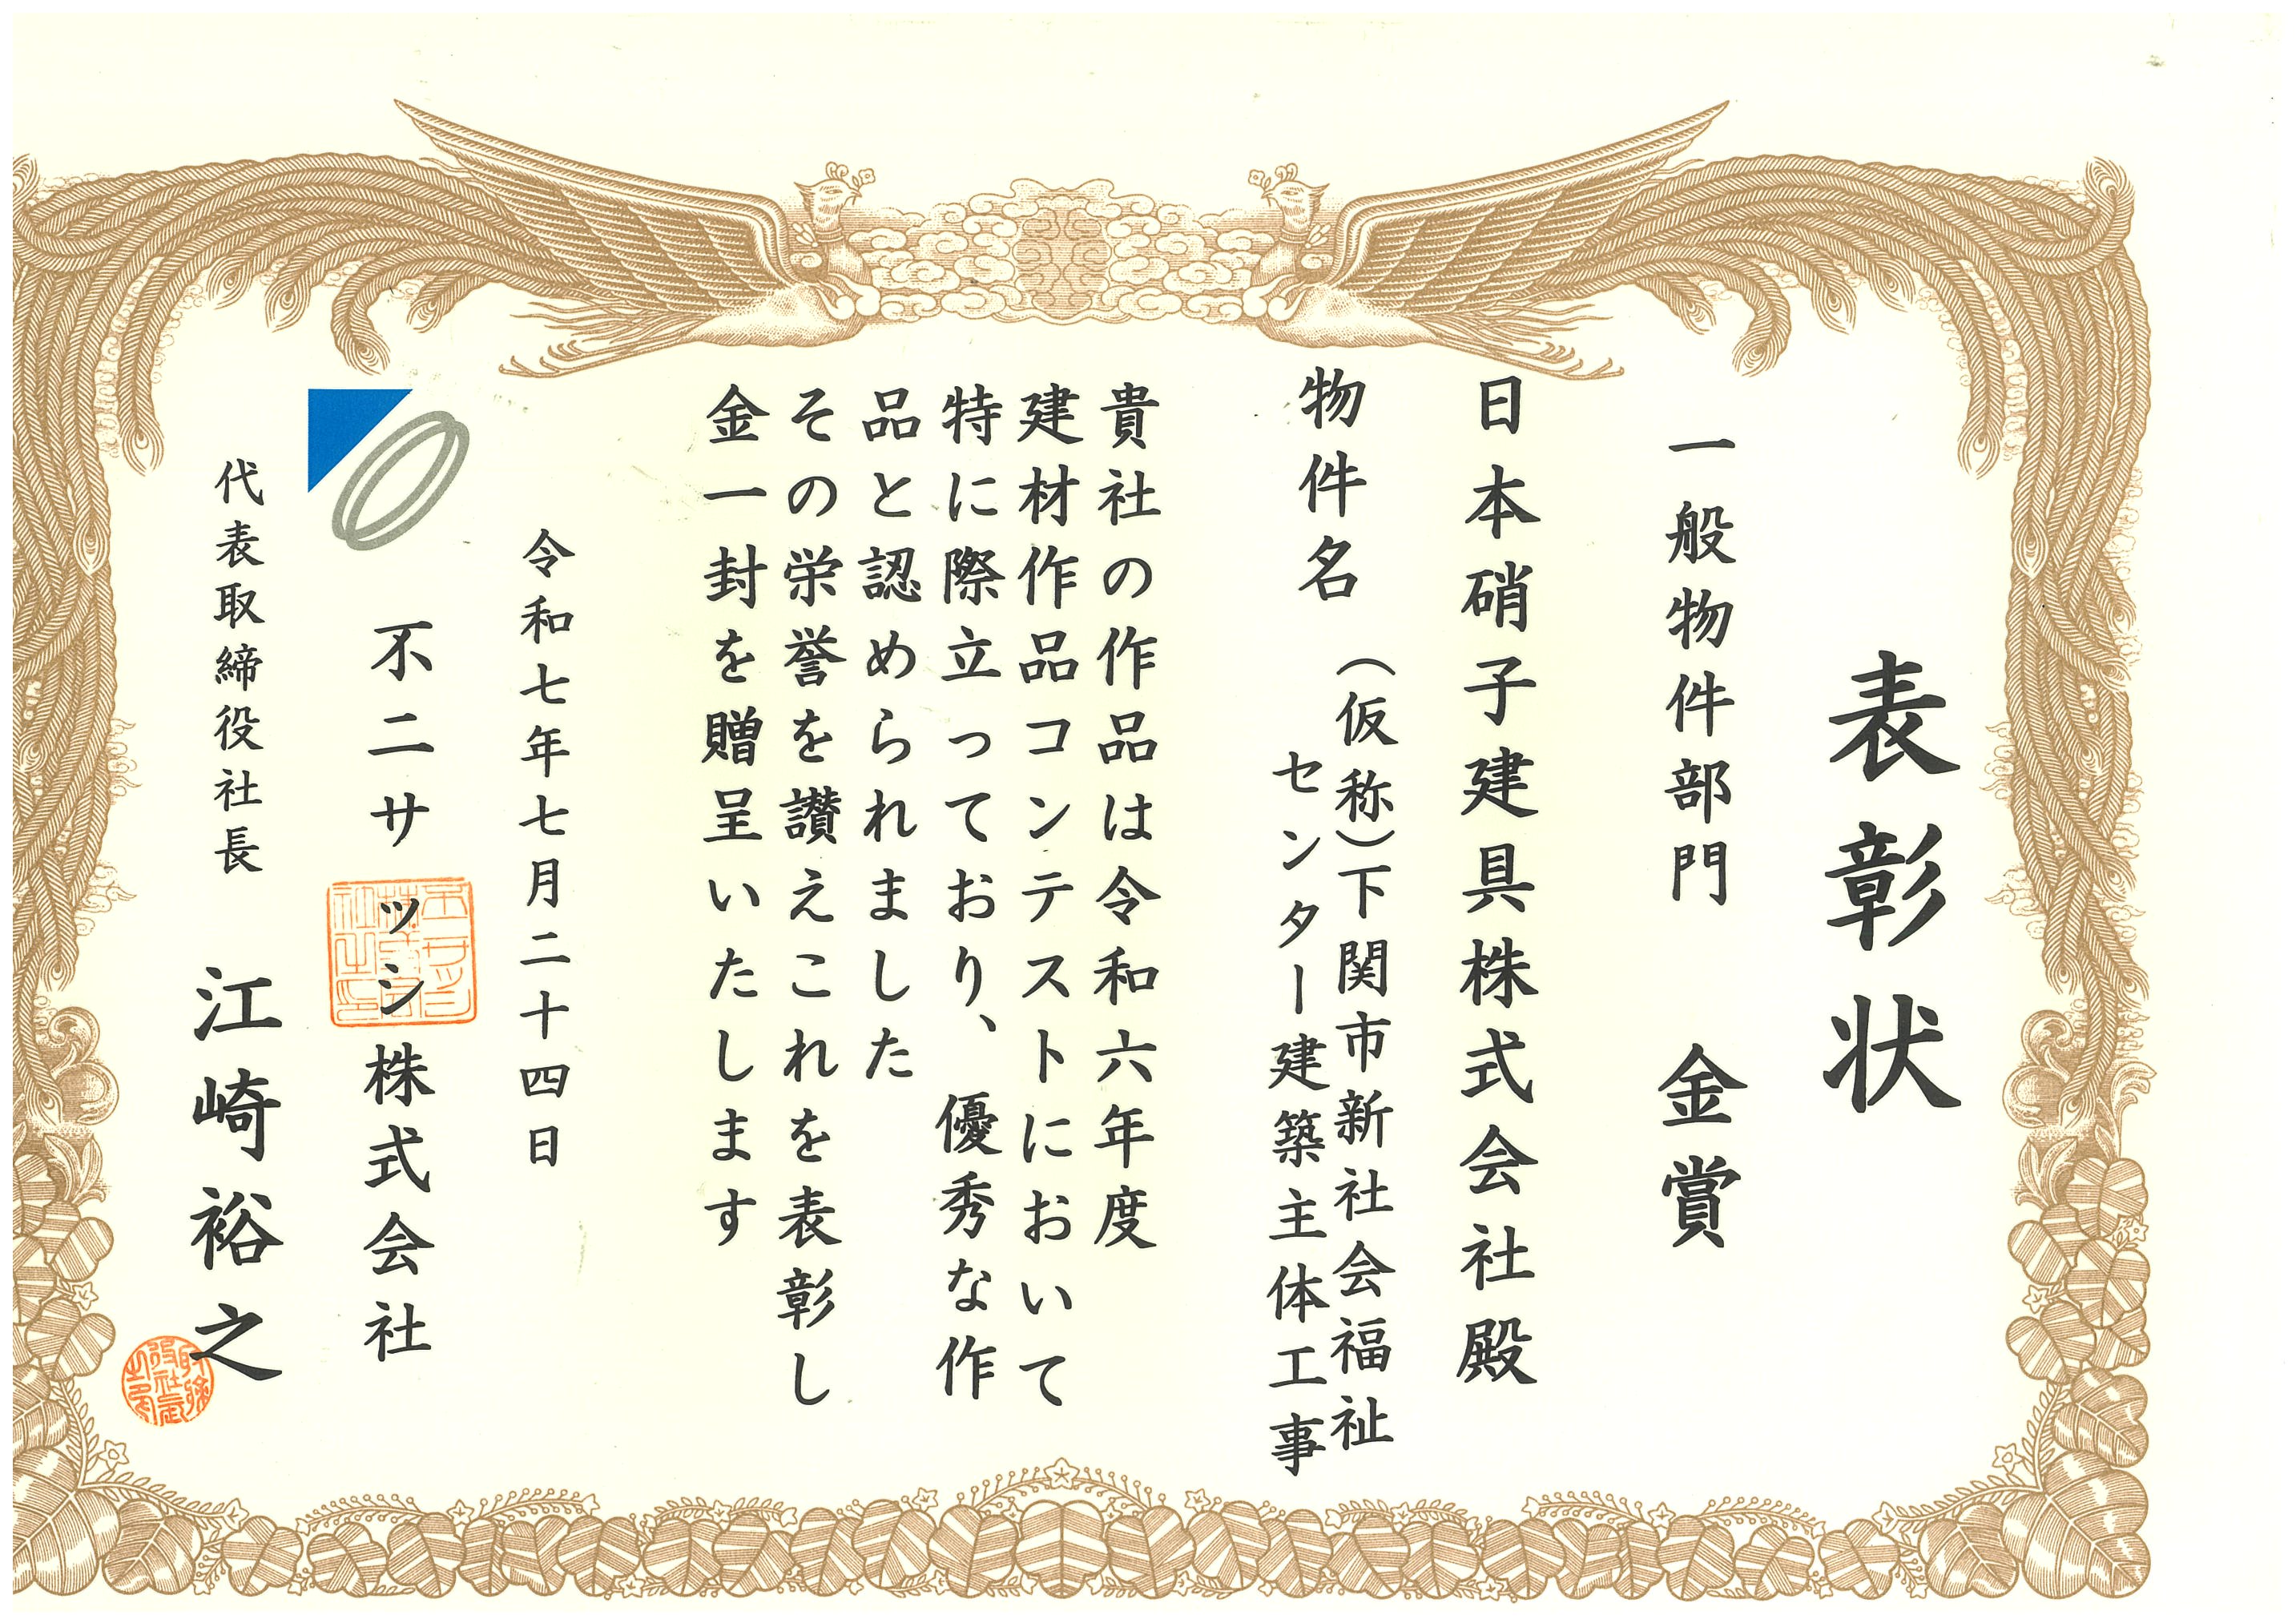 表彰状
一般物件部門 金賞
日本硝子建具株式会社殿
物件名 (仮称)下関市新社会福祉
センター建築主体工事
貴社の作品は令和六年度
建材作品コンテストにおいて
特に際立っており、優秀な作
品と認められました
その栄誉を讃えこれを表彰し
金一封を贈呈いたします
令和七年七月二十四日
不二サッシ株式会社
代表取締役社長 江崎裕之